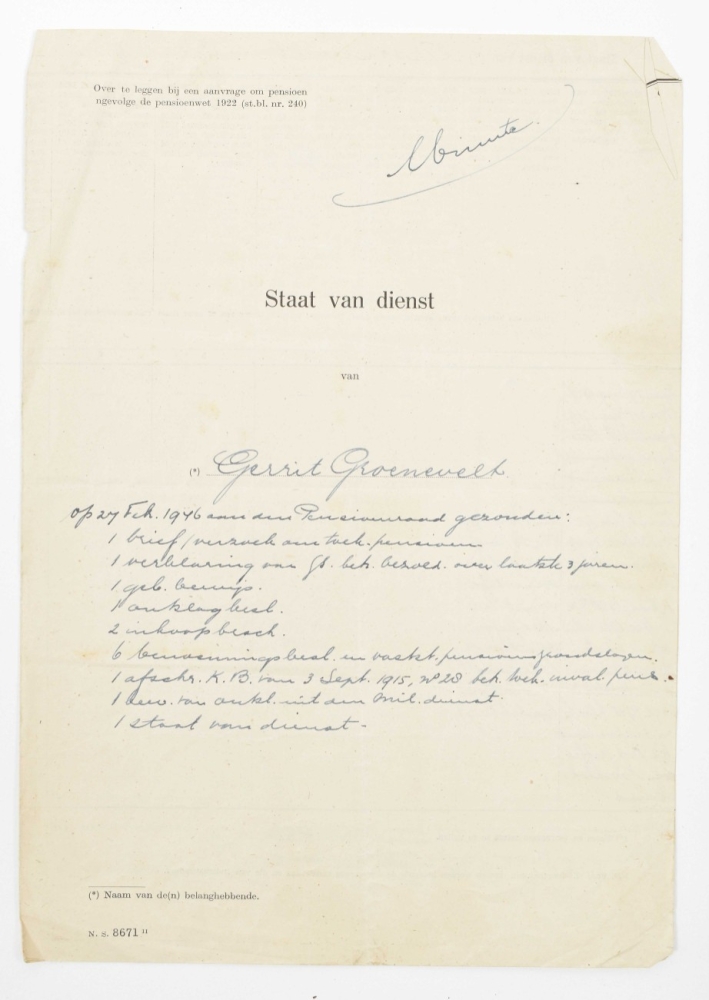 Over te leggen bij een aanvrage om pensioen
ngevolge de pensioenwet 1922 (st.bl. nr. 240)
Minute.
Staat van dienst
van
(*) Gerrit Groenevelt
op 27 Feb. 1946 aan den Pensioenraad gezonden:
1 brief/verzoek om toek. pensioen
1 verklaring van bet. bezold. over laatste 3 jaren.
1 geb. bewijs.
1 ontslagbesl.
2 inkoopbesch.
6 benoemingsbesl. en vastst. pensioengrondslagen.
1 afschr. K.B. van 3 Sept. 1915, nº 28 bet. toek. inval. pens.
1 bew. van ontsl. uit den Mil. dienst.
1 staat van dienst -
(*) Naam van de(n) belanghebbende.
N. S. 8671 11